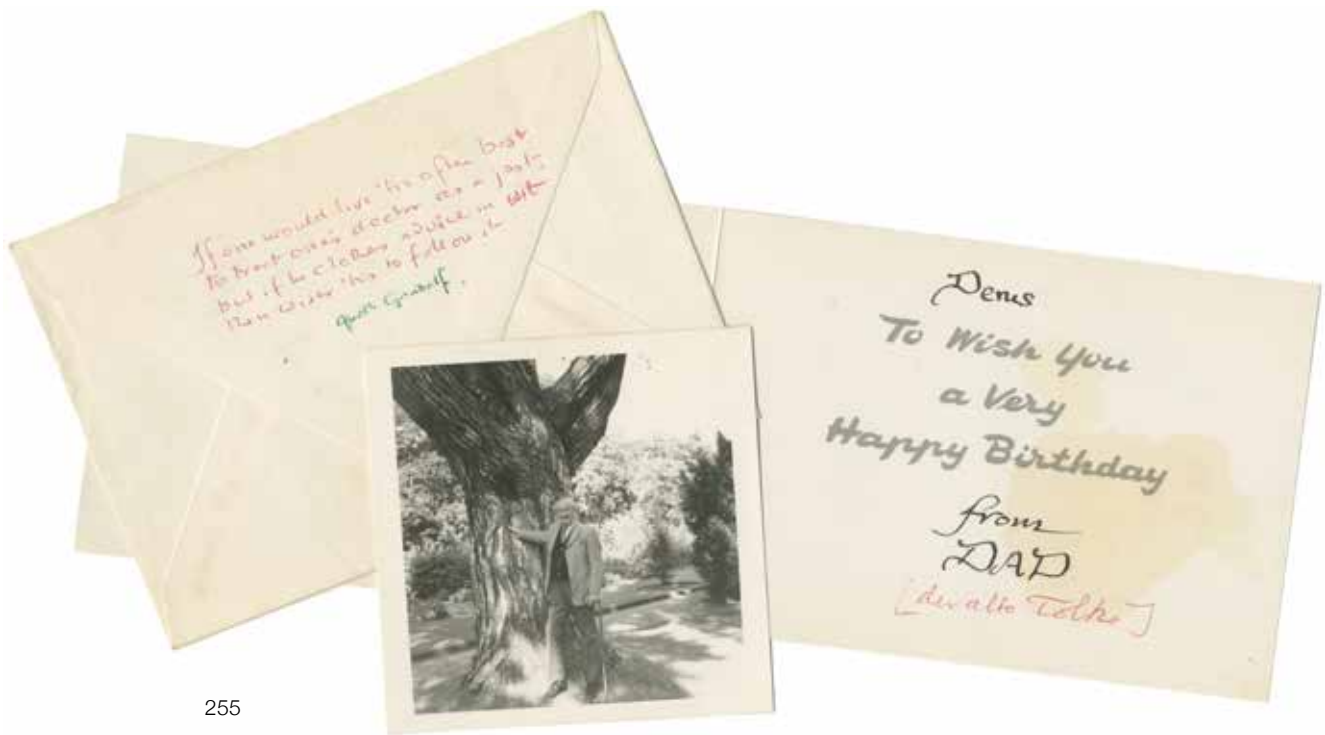 If one would live 'tis often best
to treat one's doctor as a jest;
but if he clothes advice in wit
then wiser 'tis to follow it
quoth Gandalf.
Denis
To Wish You
a Very
Happy Birthday
from
DAD
[der alte Tolke]
255